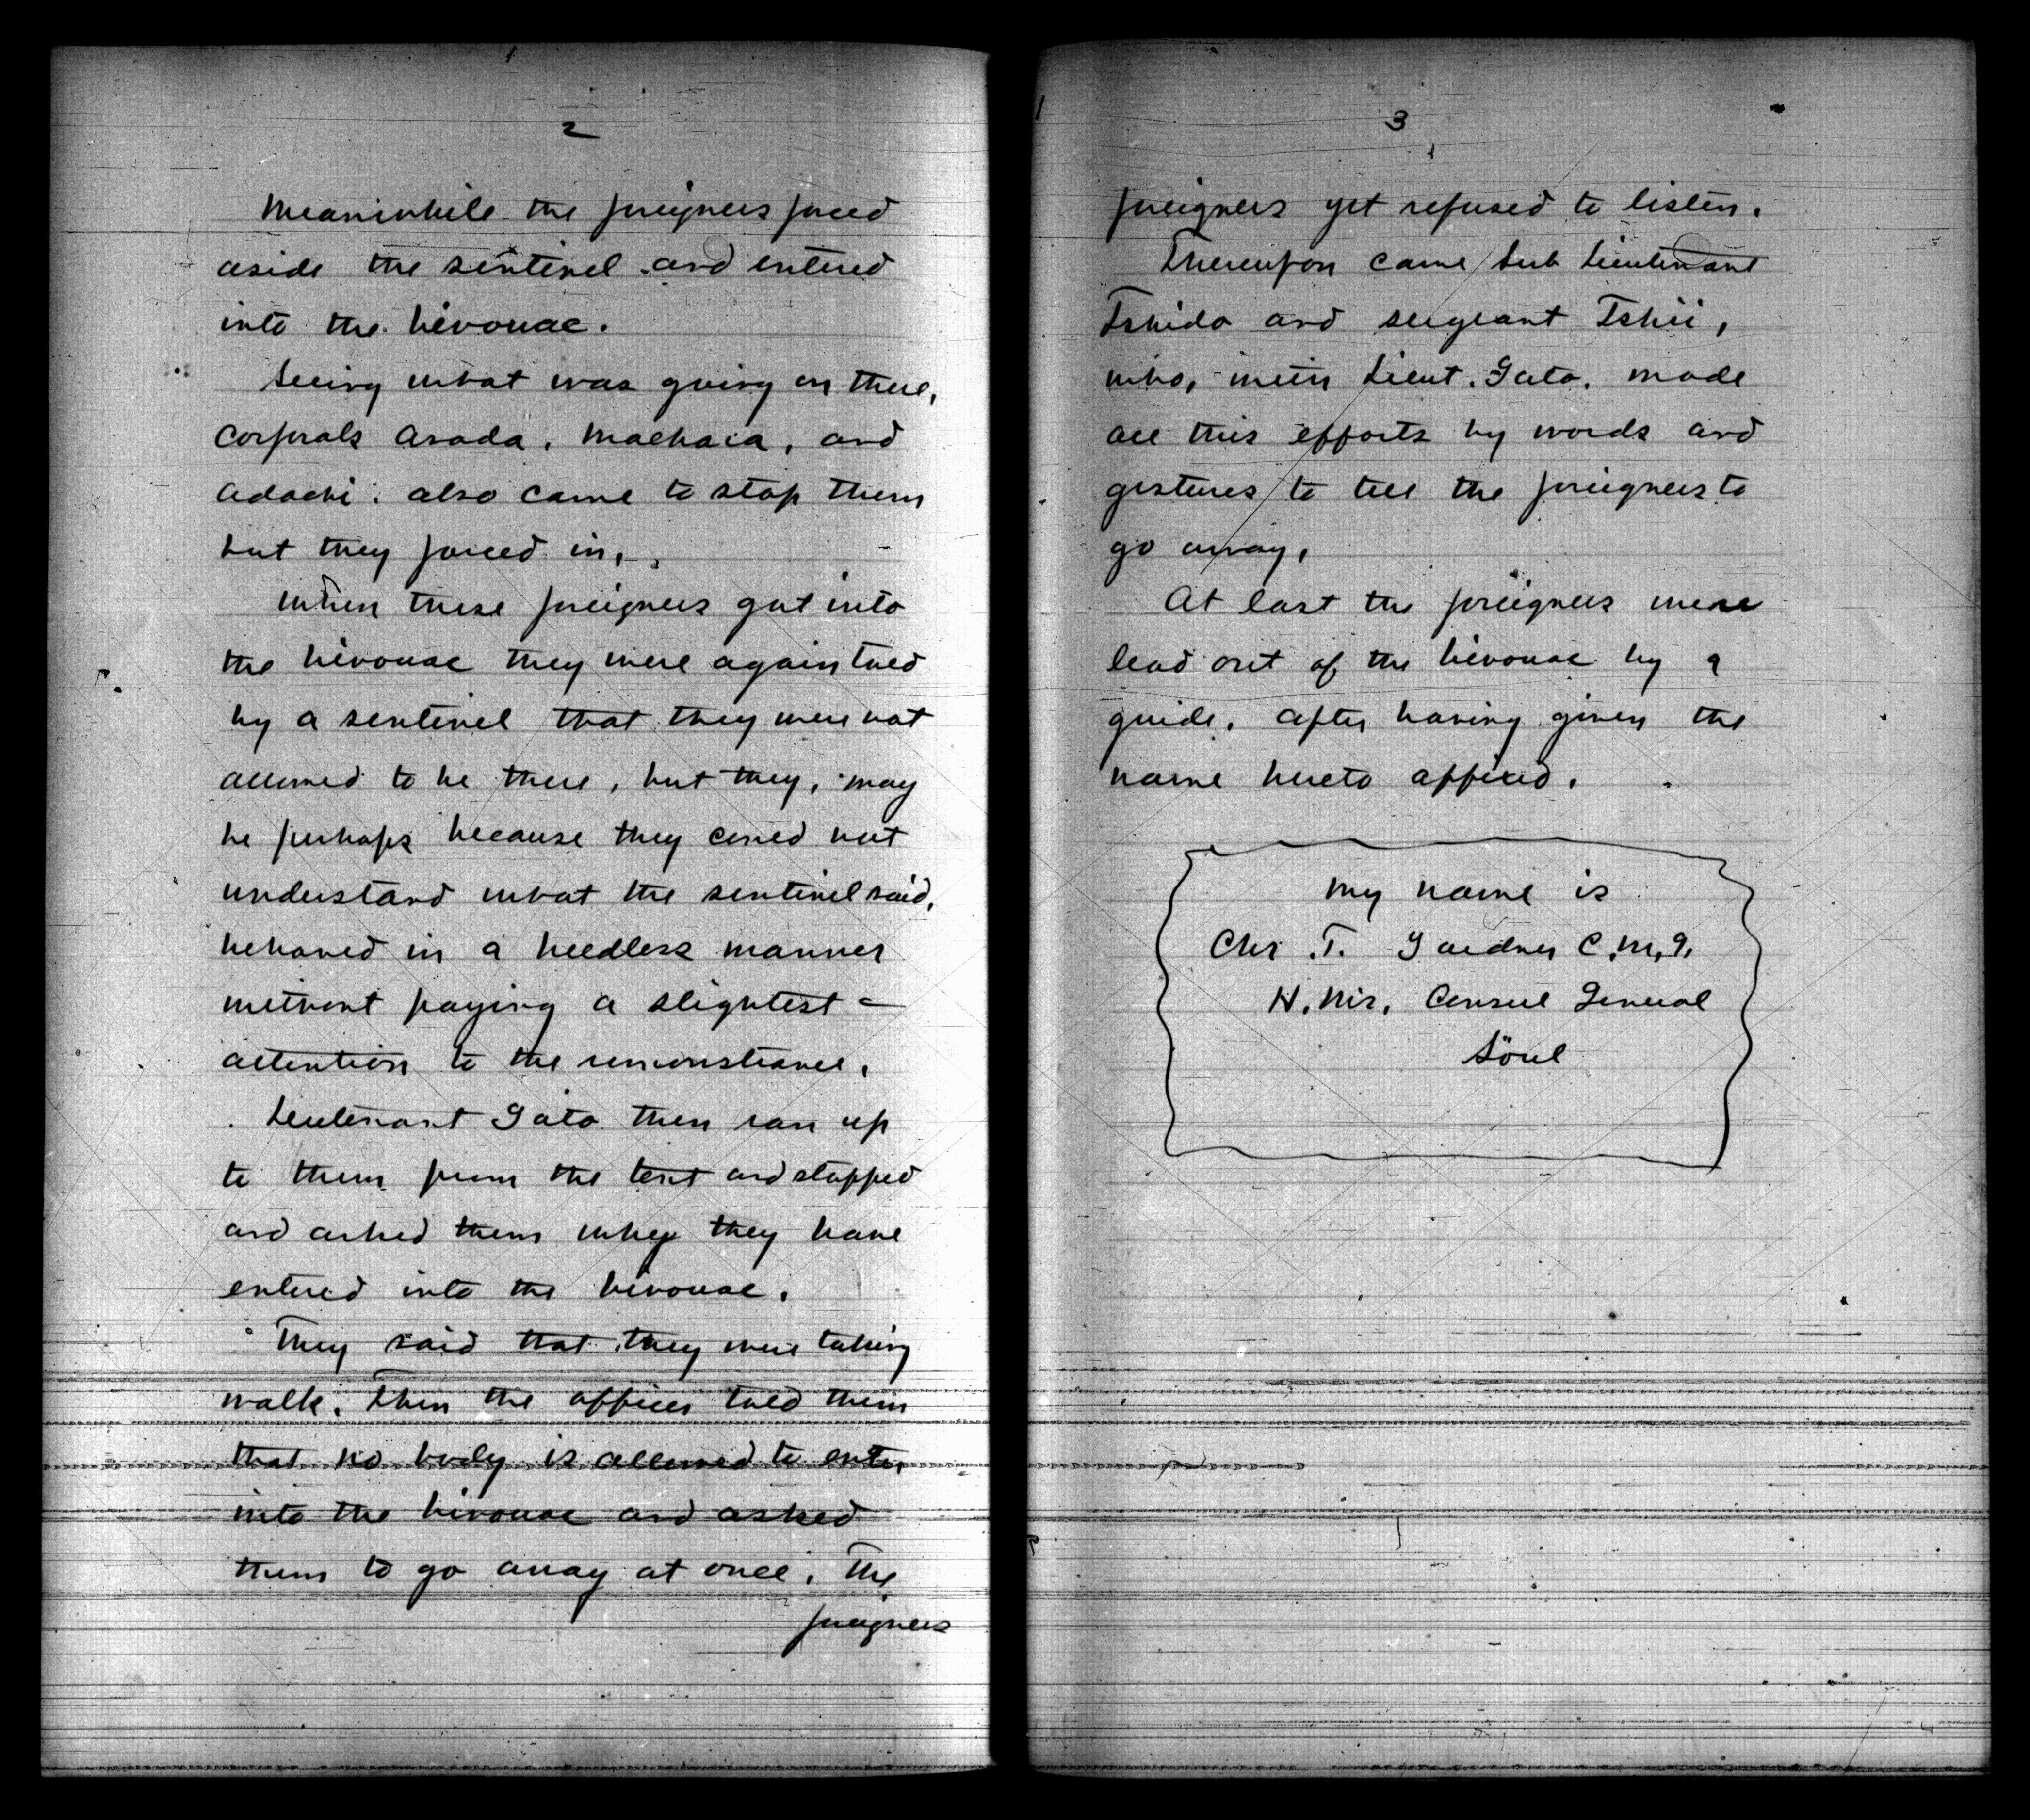 2
Meanwhile the foreigners forced
aside the sentinel and entered
into the bivouac.
Seeing what was going on there,
corporals Asada, Maehara, and
Adachi, also came to stop them
but they forced in,
When these foreigners got into
the bivouac they were again told
by a sentinel that they were not
allowed to be there, but they, may
be perhaps because they could not
understand what the sentinel said,
behaved in a heedless manner
without paying a slightest
attention to the remonstrance.
Lieutenant Gato then ran up
to them from the tent and stopped
and asked them why they have
entered into the bivouac.
They said that they were taking
walk. Then the officer told them
that no body is allowed to enter
into the bivouac and asked
them to go away at once. The
foreigners
3
foreigners yet refused to listen.
Thereupon came Sub Lieutenant
Ishido and sergeant Ishii,
who, with Lieut. Gato, made
all this efforts by words and
gestures to tell the foreigners to
go away.
At last the foreigners were
lead out of the bivouac by a
guide, after having given the
name hereto affixed.
My name is
Chr. T. Gardner C.M.G.
H.Mis. Consul General
Söul